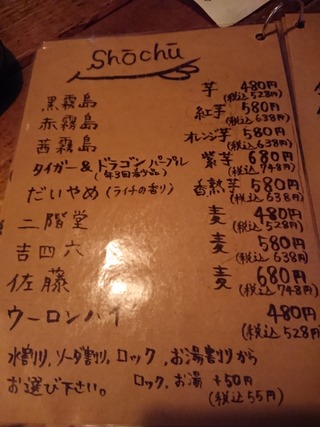 Shōchū
黒霧島 芋 480円
(税込528円)
赤霧島 紅芋 580円
(税込638円)
茜霧島 オレンジ芋 580円
(税込638円)
タイガー&ドラゴン パープル 紫芋 680円
(税込748円)
だいやめ(ライチの香り) 香熟芋 580円
(税込638円)
二階堂 麦 480円
(税込528円)
吉四六 麦 580円
(税込638円)
佐藤 麦 680円
(税込748円)
ウーロンハイ 480円
(税込528円)
水割り,ソーダ割り,ロック,お湯割りから
お選び下さい。 ロック,お湯 +50円
(税込55円)